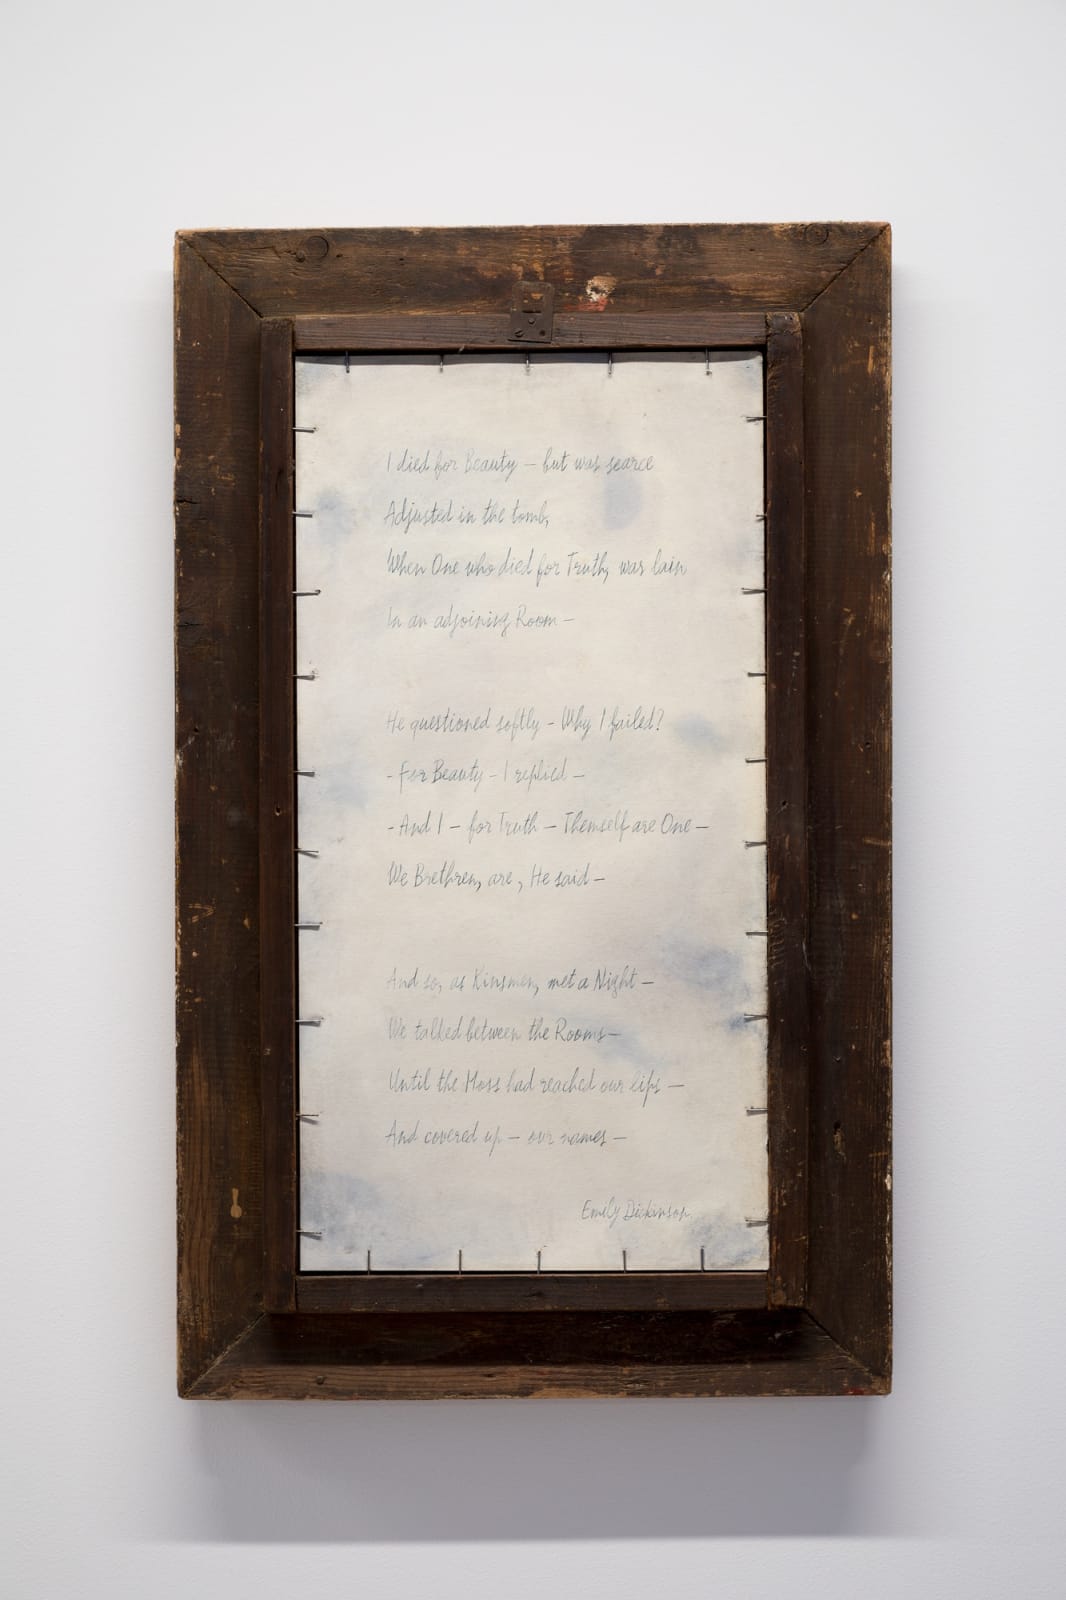 I died for Beauty – but was scarce
Adjusted in the tomb,
When One who died for Truth, was lain
In an adjoining Room –
He questioned softly – Why I failed?
- For Beauty – I replied –
- And I – for Truth – Themself are One –
We Brethren, are, He said –
And so, as Kinsmen, met a Night –
We talked between the Rooms –
Until the Moss had reached our lips –
And covered up – our names –
Emily Dickinson